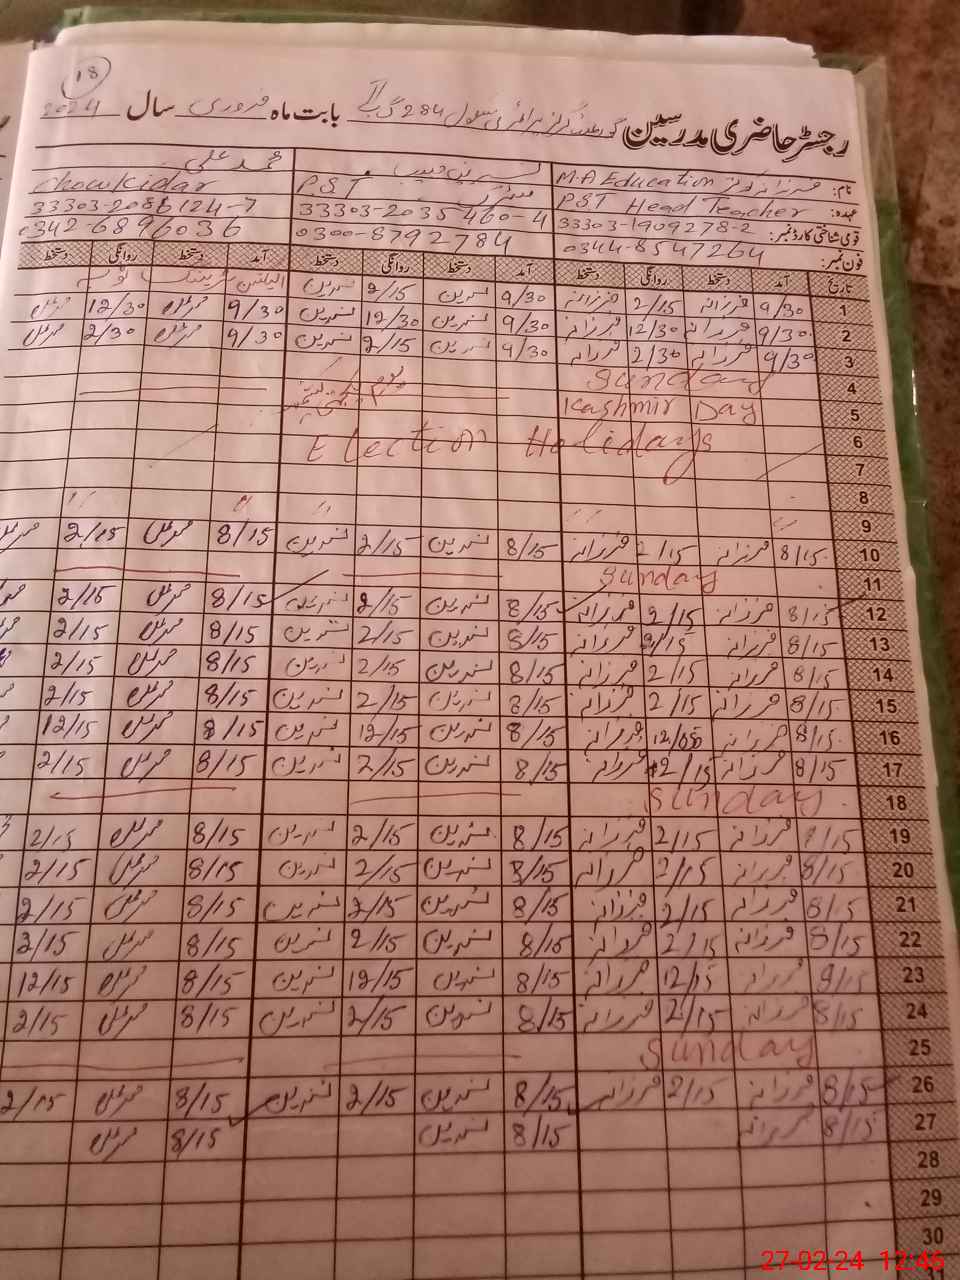 18
رجسٹر حاضری مدرسین گورنمنٹ گرلز پرائمری سکول 284 گ ب بابت ماہ فروری سال 2024
نام: فرزانہ کوثر M.A Education نسرین حبیب محمد علی
عہدہ: PST Head Teacher میٹرک P.S.T Chowkidar
قومی شناختی کارڈ نمبر: 33303-1909278-2 33303-2035460-4 33303-2086124-7
فون نمبر: 0344-8547264 0300-8792784 0342-6896036
تاریخ آمد دستخط روانگی دستخط آمد دستخط روانگی دستخط آمد دستخط روانگی دستخط
1 9/30 فرزانہ 2/15 فرزانہ 9/30 نسرین 2/15 نسرین
2 9/30 فرزانہ 12/30 فرزانہ 9/30 نسرین 12/30 نسرین 9/30 محمد علی 12/30 محمد علی
3 9/30 فرزانہ 2/30 فرزانہ 9/30 نسرین 2/15 نسرین 9/30 محمد علی 2/30 محمد علی
4 Sunday
5 Kashmir Day یوم
6 Election Holidays
7
8
9
10 8/15 فرزانہ 2/15 فرزانہ 8/15 نسرین 2/15 نسرین 8/15 محمد علی 2/15 محمد علی
11 Sunday
12 8/15 فرزانہ 2/15 فرزانہ 8/15 نسرین 2/15 نسرین 8/15 محمد علی 2/15
13 8/15 فرزانہ 2/15 فرزانہ 8/15 نسرین 2/15 نسرین 8/15 محمد علی 2/15
14 8/15 فرزانہ 2/15 فرزانہ 8/15 نسرین 2/15 نسرین 8/15 محمد علی 2/15
15 8/15 فرزانہ 2/15 فرزانہ 8/15 نسرین 2/15 نسرین 8/15 محمد علی 2/15
16 8/15 فرزانہ فرزانہ 8/15 نسرین 12/15 نسرین 8/15 محمد علی 12/15
17 8/15 فرزانہ 2/15 فرزانہ 8/15 نسرین 2/15 نسرین 8/15 محمد علی 2/15
18 Sunday
19 8/15 فرزانہ 2/15 فرزانہ 8/15 نسرین 2/15 نسرین 8/15 محمد علی 2/15
20 8/15 فرزانہ 2/15 فرزانہ 8/15 نسرین 2/15 نسرین 8/15 محمد علی 2/15
21 8/15 فرزانہ 2/15 فرزانہ 8/15 نسرین 2/15 نسرین 8/15 محمد علی 2/15
22 8/15 فرزانہ 2/15 فرزانہ 8/15 نسرین 2/15 نسرین 8/15 محمد علی 2/15
23 فرزانہ 12/15 فرزانہ 8/15 نسرین 12/15 نسرین 8/15 محمد علی 12/15
24 8/15 فرزانہ 2/15 فرزانہ 8/15 نسرین 2/15 نسرین 8/15 محمد علی 2/15
25 Sunday
26 8/15 فرزانہ 2/15 فرزانہ 8/15 نسرین 2/15 نسرین 8/15 محمد علی 2/15
27 8/15 فرزانہ 8/15 نسرین 8/15 محمد علی
28
29
30
27-02-24 12:45